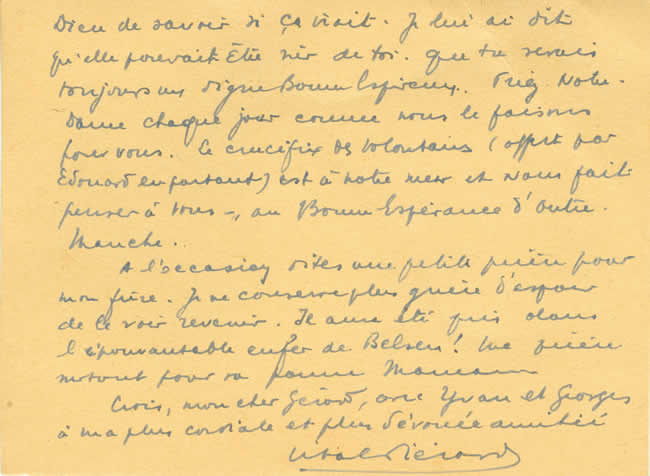 Dieu de savoir si ça irait. Je lui ai dit
qu'elle pouvait être sûr de toi. que tu serais
toujours un digne Bonne Espérance. Priez Notre-
Dame chaque jour comme nous le faisons
pour vous. Le crucifix des Volontaires (offert par
Edouard en partant) est à notre mess et nous fait
penser à vous -, au Bonne Espérance d'outre-
Manche.
A l'occasion dites une petite prière pour
mon frère. Je ne conserve plus guère d'espoir
de le voir revenir. Il aura été pris dans
l'épouvantable enfer de Belsen! Une prière
surtout pour sa pauvre Maman
Crois, mon cher Gérard, avec Yvan et Georges
à ma plus cordiale et plus dévouée amitié